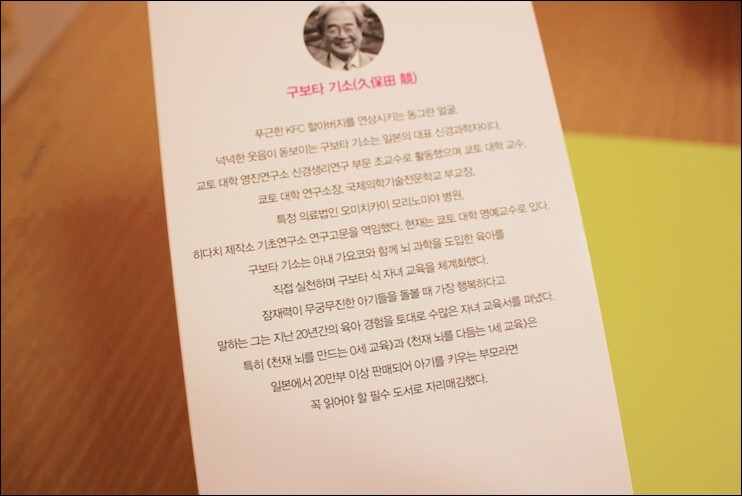 구보타 기소(久保田 競)
푸근한 KFC 할아버지를 연상시키는 동그란 얼굴.
넉넉한 웃음이 돋보이는 구보타 기소는 일본의 대표 신경과학자이다.
교토 대학 영진연구소 신경생리연구 부문 조교수로 활동했으며 쿄토 대학 교수,
쿄토 대학 연구소장, 국제의학기술전문학교 부교장,
특정 의료법인 오미치카이 모리노미야 병원,
히다치 제작소 기초연구소 연구고문을 역임했다. 현재는 쿄토 대학 명예교수로 있다.
구보타 기소는 아내 가요코와 함께 뇌 과학을 도입한 육아를
직접 실천하며 구보타 식 자녀 교육을 체계화했다.
잠재력이 무궁무진한 아기들을 돌볼 때 가장 행복하다고
말하는 그는 지난 20년간의 육아 경험을 토대로 수많은 자녀 교육서를 펴냈다.
특히 《천재 뇌를 만드는 0세 교육》과 《천재 뇌를 다듬는 1세 교육》은
일본에서 20만부 이상 판매되어 아기를 키우는 부모라면
꼭 읽어야 할 필수 도서로 자리매김했다.